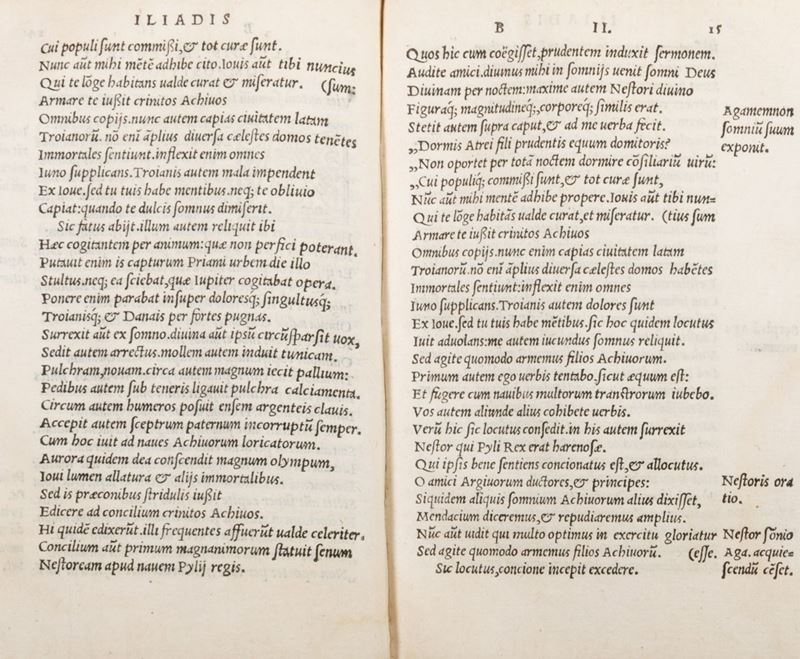 ILIADIS
Cui populi ſunt commiſſi,& tot curæ ſunt.
Nunc aūt mihi mētē adhibe cito.Iouis aūt tibi nuncius
Qui te lōge habitans ualde curat & miſeratur. (ſum:
Armare te iuſsit crinitos Achiuos
Omnibus copijs.nunc autem capias ciuitatem latam
Troianorū. nō enī āplius diuerſa cæleſtes domos tenētes
Immortales ſentiunt.inflexit enim omnes
Iuno ſupplicans.Troianis autem mala impendent
Ex Ioue.ſed tu tuis habe mentibus.neq; te obliuio
Capiat:quando te dulcis ſomnus dimiſerit.
Sic fatus abijt.illum autem reliquit ibi
Hæc cogitantem per animum:quæ non perfici poterant.
Putauit enim is capturum Priami urbem die illo
Stultus.neq; ea ſciebat,quæ Iupiter cogitabat opera.
Ponere enim parabat inſuper doloresq; ſingultusq;
Troianisq; & Danais per fortes pugnas.
Surrexit aūt ex ſomno.diuina aūt ipſū circūſparſit uox,
Sedit autem arrectus.mollem autem induit tunicam.
Pulchram,nouam.circa autem magnum iecit pallium:
Pedibus autem ſub teneris ligauit pulchra calciamenta.
Circum autem humeros poſuit enſem argenteis clauis.
Accepit autem ſceptrum paternum incorruptū ſemper.
Cum hoc iuit ad naues Achiuorum loricatorum.
Aurora quidem dea conſcendit magnum olympum,
Ioui lumen allatura & alijs immortalibus.
Sed is præconibus ſtridulis iuſsit
Edicere ad concilium crinitos Achiuos.
Hi quidē edixerūt.illi frequentes affuerūt ualde celeriter.
Concilium aūt primum magnanimorum ſtatuit ſenum
Neſtoream apud nauem Pylij regis.
B II. 15
Quos hic cum coëgiſſet,prudentem induxit ſermonem.
Audite amici.diuinus mihi in ſomnijs uenit ſomni Deus
Diuinam per noctem:maxime autem Neſtori diuino
Figuraq; magnitudineq;,corporeq; ſimilis erat.
Stetit autem ſupra caput,& ad me uerba fecit.
„Dormis Atrei fili prudentis equum domitoris?
„Non oportet per totā noctem dormire cōſiliariū uirū:
„Cui populiq; commiſſi ſunt,& tot curæ ſunt,
Nūc aūt mihi mentē adhibe propere.Iouis aūt tibi nun=
Qui te lōge habitās ualde curat,et miſeratur. (tius ſum
Armare te iuſsit crinitos Achiuos
Omnibus copijs.nunc enim capias ciuitatem latam
Troianorū.nō enī āplius diuerſa cæleſtes domos habētes
Immortales ſentiunt:inflexit enim omnes
Iuno ſupplicans.Troianis autem dolores ſunt
Ex Ioue.ſed tu tuis habe mētibus.ſic hoc quidem locutus
Iuit aduolans:me autem iucundus ſomnus reliquit.
Sed agite quomodo armemus filios Achiuorum.
Primum autem ego uerbis tentabo.ſicut æquum eſt:
Et fugere cum nauibus multorum tranſtrorum iubebo.
Vos autem aliunde alius cohibete uerbis.
Verū hic ſic locutus conſedit.in his autem ſurrexit
Neſtor qui Pyli Rex erat harenoſæ.
Qui ipſis bene ſentiens concionatus eſt,& allocutus.
O amici Argiuorum ductores,& principes:
Siquidem aliquis ſomnium Achiuorum alius dixiſſet,
Mendacium diceremus,& repudiaremus amplius.
Nūc aūt uidit qui multo optimus in exercitu gloriatur
Sed agite quomodo armemus filios Achiuorū. (eſſe.
Sic locutus,concione incepit excedere.
Agamemnon
ſomniū ſuum
exponit.
Neſtoris ora
tio.
Neſtor ſōnio
Aga. acquie=
ſcendū cēſet.